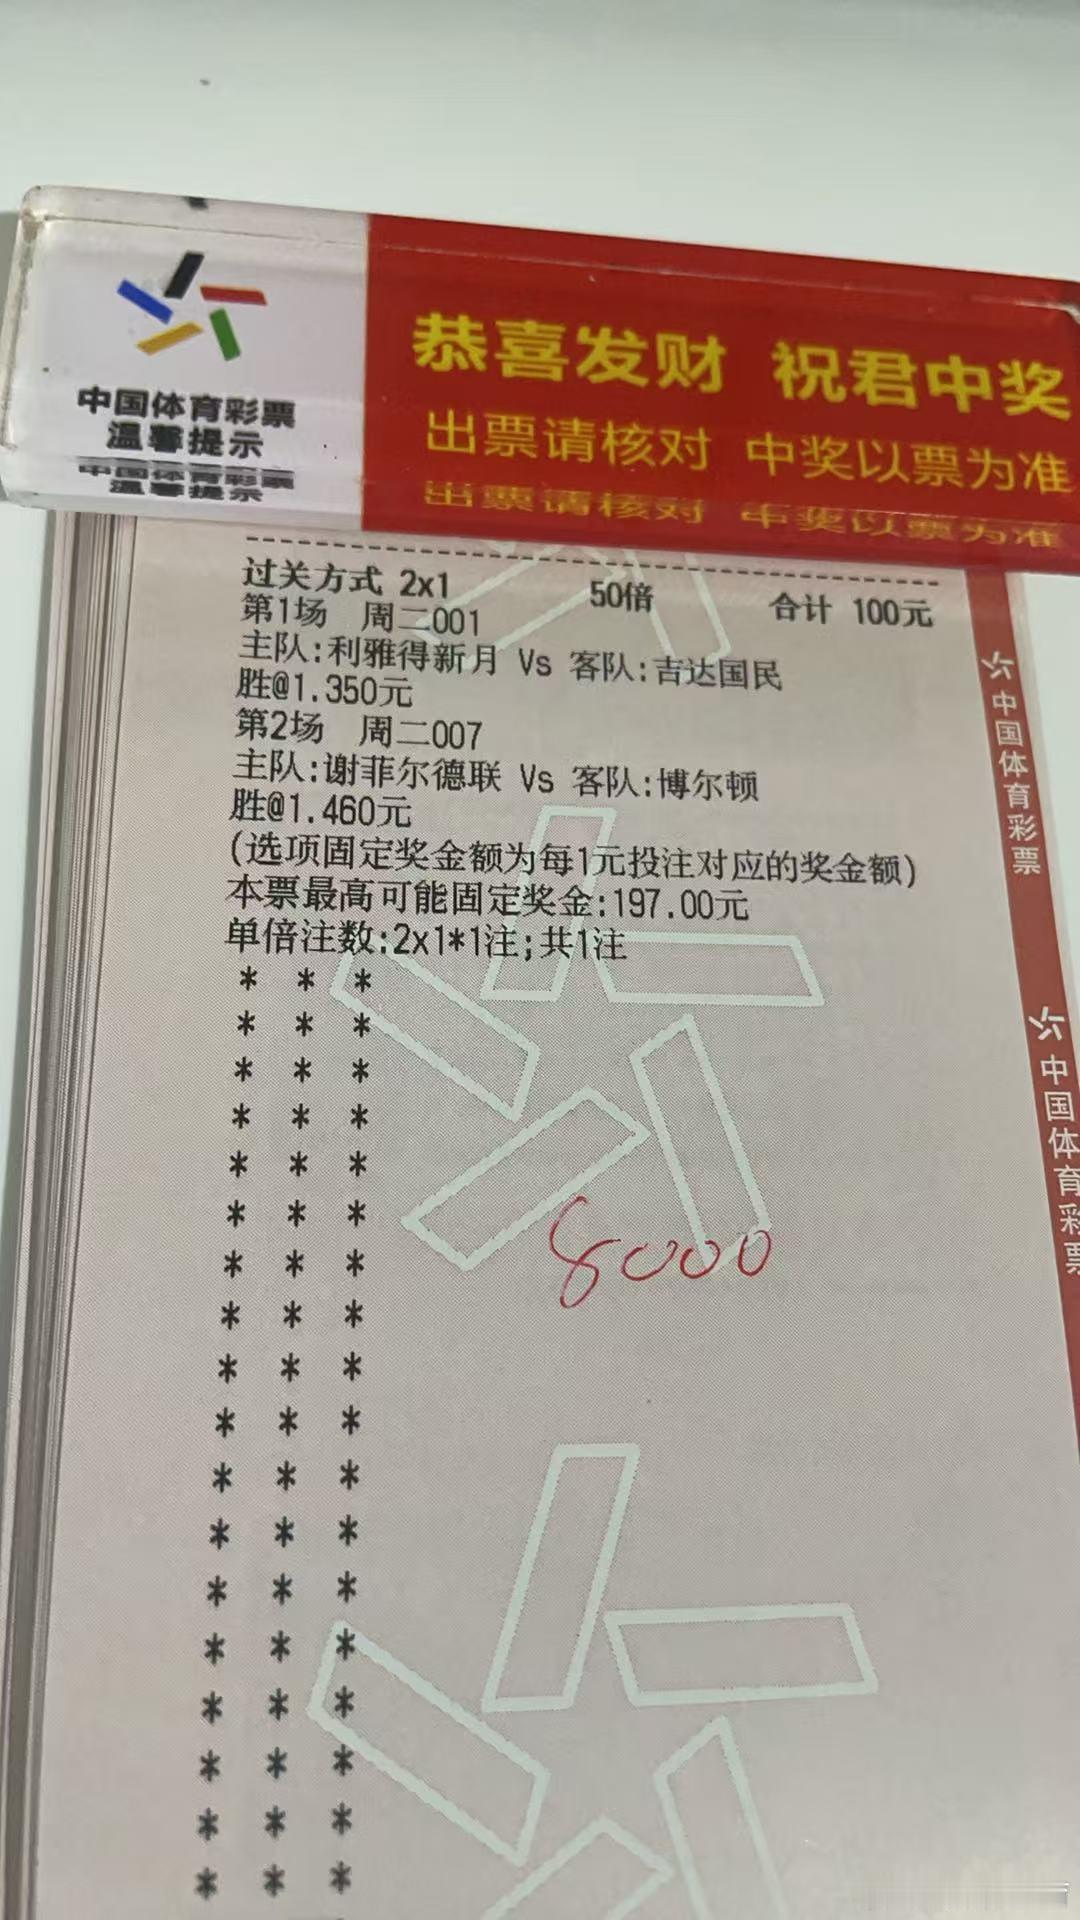 中国体育彩票
温馨提示
恭喜发财 祝君中奖
出票请核对 中奖以票为准
中国体育彩票
温馨提示
出票请核对 中奖以票为准
过关方式 2x1 50倍 合计 100元
第1场 周二001
主队:利雅得新月 Vs 客队:吉达国民
胜@1.350元
第2场 周二007
主队:谢菲尔德联 Vs 客队:博尔顿
胜@1.460元
(选项固定奖金额为每1元投注对应的奖金额)
本票最高可能固定奖金:197.00元
单倍注数:2x1*1注;共1注
* * *
* * *
* * *
* * *
* * *
* * *
* * *
* * *
* * *
* * *
* * *
* * *
* * *
* * *
* * *
* * *
* * *
* * *
8000
中国体育彩票
中国体育彩票